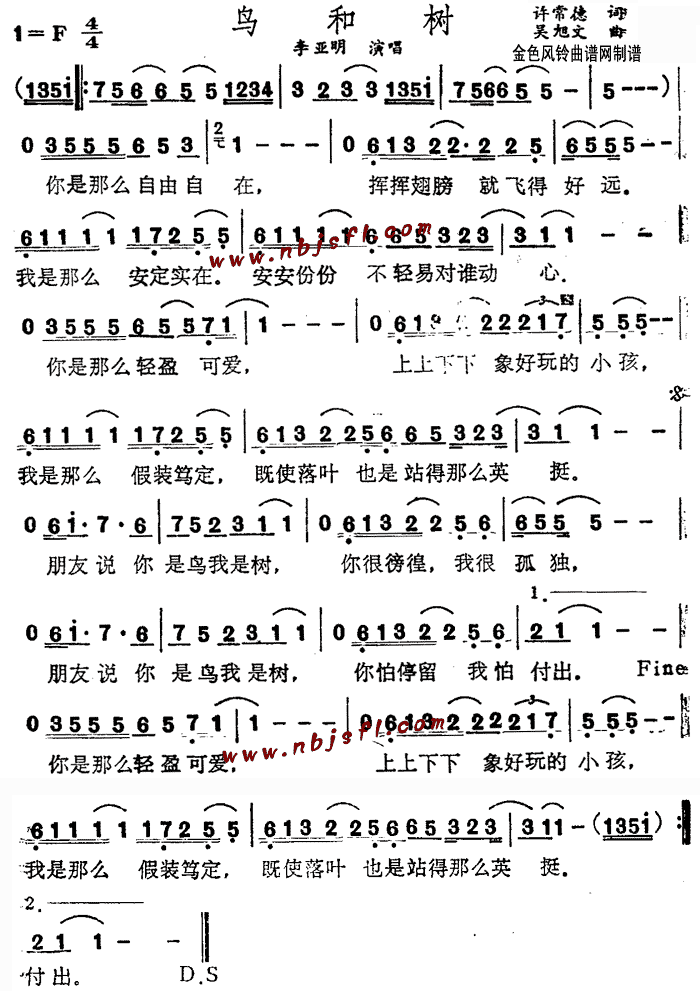 鸟 和 树
许常德 词
吴旭文 曲
1=F 4/4
李亚明 演唱
金色风铃曲谱网制谱
(135i‖: 75665 5 1234 | 3 2 3 3 135i | 756655 - | 5 - - - )|
0 3555 5653 | 2元 1 - - - | 0 6132 2 · 2 2 5 | 6555 - - |
你是那么自由自 在, 挥挥翅膀 就飞得 好 远.
6111 1 1725 5 | 6111 1 6 65323 | 311 - - ‖
我是那么 安定实在. 安安份份 不轻易对谁动 心.
www.nbjsfl.com
0 3555 65571 | 1 - - - | 0 61 222217 | 5 55 - - |
你是那么轻盈 可爱, 上上下下 象好玩的 小孩,
6111 1 1725 5 | 6132 256 65323 | 31 1 - - |
我是那么 假装笃定, 既使落叶 也是站得那么英 挺.
0 6i · 7 · 6 | 7523 1 1 | 0 6132 2 5 6 | 655 5 - - |
朋友说 你 是鸟我是树, 你很徬徨, 我很 孤 独,
1.
0 6i · 7 · 6 | 7 523 1 1 | 0 6132 2 5 6 | 21 1 - - ‖
朋友说 你 是鸟我是树, 你怕停留 我怕 付出. Fine
0 3555 65 71 | 1 - - - | 0 6132 222217 | 5 55 - - |
你是那么轻盈可爱, 上上下下 象好玩的 小孩,
www.nbjsfl.com
6111 1 1725 5 | 6132 256 65323 | 311 - (135i) :‖
我是那么 假装笃定, 既使落叶 也是站得那么英 挺.
2.
21 1 - - ‖
付出。 D.S